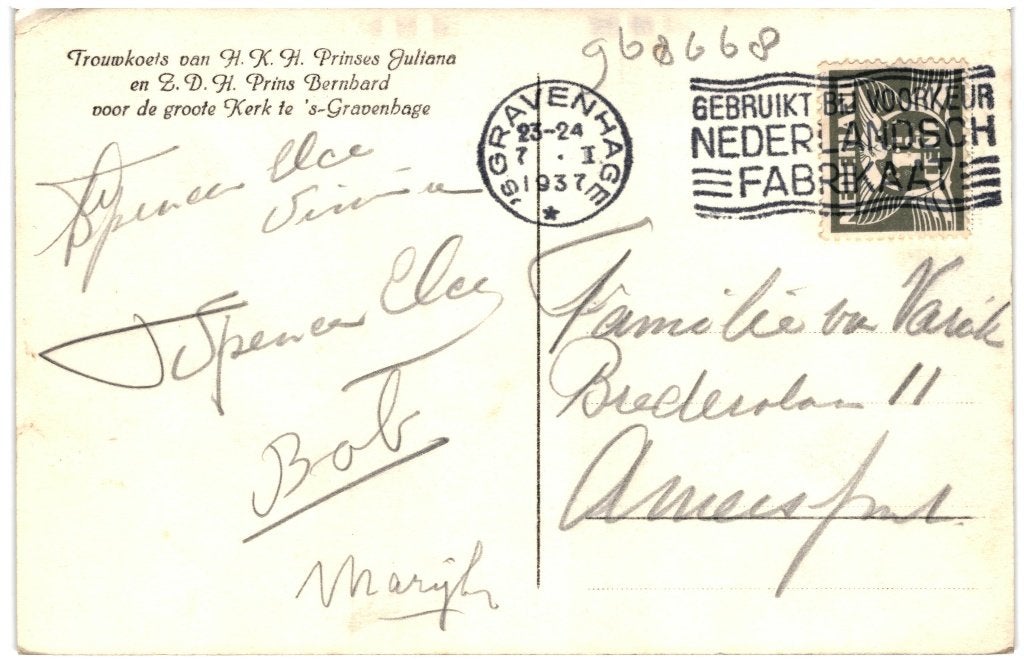 Trouwkoets van H. K. H. Prinses Juliana
en Z. D. H. Prins Bernhard
voor de groote Kerk te 's-Gravenhage
968668
'SGRAVENHAGE
23-24
7 . I
1937
GEBRUIKT BIJ VOORKEUR
NEDERLANDSCH
FABRIKAAT
NEDERLAND
Spencer Elce
Spencer Elce
Bob
Familie van Varik
11
Amersfoort